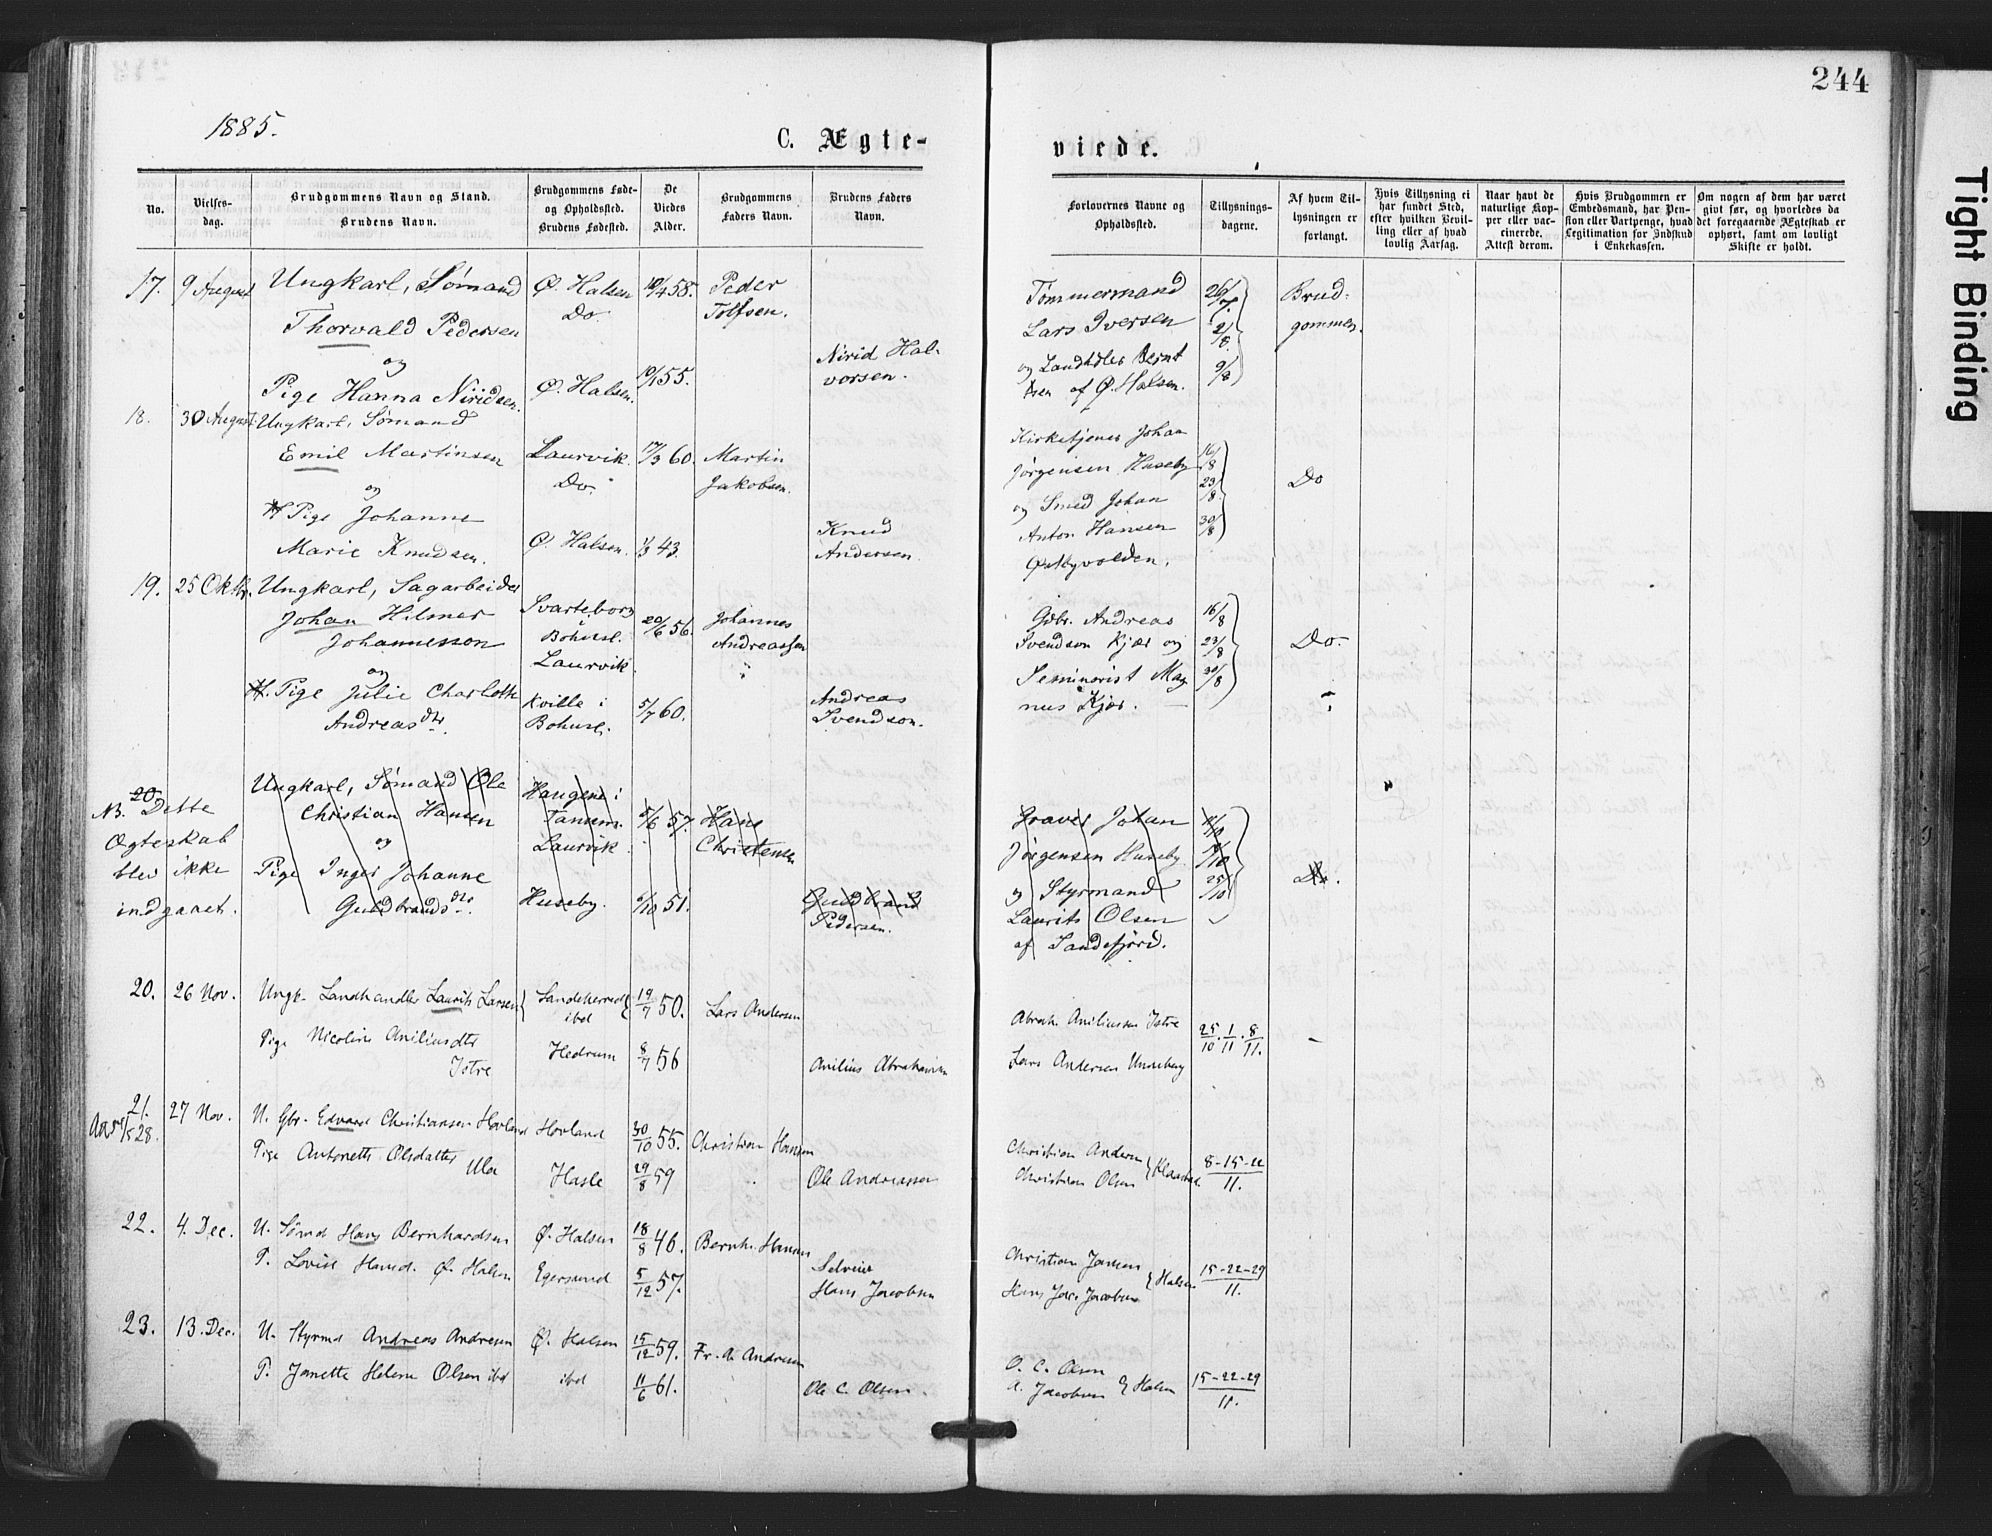 244
Tight Binding
1885.
C. Ægte-
viede.
No.
Vielses-
dag.
Brudgommens Navn og Stand.
Brudens Navn.
Brudgommens Føde-
og Opholdssted.
Brudens Fødested.
De
Viedes
Alder.
Brudgommens
Faders Navn.
Brudens Faders
Navn.
Forlovernes Navne og
Opholdssted.
Tillysnings-
dagene.
Af hvem Til-
lysningen er
forlangt.
Hvis Tillysning ei
har fundet Sted,
efter hvilken Bevil-
ling eller af hvad
lovlig Aarsag.
Naar havt de
naturlige Kop-
per eller vac-
cinerede.
Attest derom.
Hvis Brudgommen er
Embedsmand, har Pen-
sion eller Vartpenge, hvad
Legitimation for Indskud
i Enkekassen.
Om nogen af dem har været
givt før, og hvorledes da
det foregaaende Ægteskab er
ophørt, samt om lovligt
Skifte er holdt.
17.
9 August
Ungkarl, Sømand
Thorvald Pedersen
og
Pige Hanna Niridsen.
Ø. Halsen
Do.
Ø. Halsen.
10/4 58.
10/1 55.
Peder
Tolfsen.
Nirid Hal-
vorsen.
Tømmermand
Lars Iversen
og Landhdler Bernt
sen af Ø. Halsen.
26/7
2/8
9/8
Brud-
gommen.
18.
30 August
Ungkarl, Sømand
Emil Martinsen
og
Pige Johanne
Marie Knudsen.
Laurvik.
Do.
Ø. Halsen.
17/3 60.
1/3 43.
Martin
Jakobsen.
Knud
Andersen.
Kirketjener Johan
Jørgensen Huseby
og Smed Johan
Anton Hansen
Østbyvolden.
16/8
23/8
30/8
Do
19.
25 Oktbr.
Ungkarl, Sagarbeider
Johan Hilmer
Johannesson
og
Pige Julie Charlotte
Andreasdtr.
Svarteborg
Bohusl.
Laurvik.
Kville i
Bohusl.
20/6 56.
5/7 60.
Johannes
Andreassen
Andreas
Svendson.
Gdbr. Andreas
Svendson Kjær og
Seminarist Mag
nus Kjær.
16/8
23/8
30/8
Do.
20
NB. Dette
Ægteskab
blev ikke
indgaaet.
Ungkarl, Sømand Ole
Christian Hansen
og
Pige Inger Johanne
Guldbrandsdtr.
Haugene i
Tanum.
Laurvik.
Huseby.
5/6 57.
6/10 51.
Hans
Christensen
Guldbrand
Pedersen.
Graver Johan
Jørgensen Huseby
og Styrmand
Laurits Olsen
af Sandefjord.
11/10
18/10
25/10
Do.
20.
26 Nov.
Ungk. Landhandler Laurits Larsen
Pige Nicoline Aniliusdtr
Istre
Sandeherred
ibd
Hedrum
19/7 50.
8/7 56
Lars Andersen
Anilius Abrahamsen
Abrah. Aniliussen Istre
Lars Andersen Unneberg
25/10. 1/11. 8/11.
21.
27 Nov.
U. Gbr. Edvard Christiansen Hovland
Pige Antonette Olsdatter
Ula
Hovland
Hasle
30/10 55.
29/8 59
Christian Hansen
Ole Andreassen
Christian Andersen
Christian Olsen
Klaastad.
8-15-22
11.
22.
4. Dec.
U. Sømd Hans Bernhardsen
P. Lovise Hansd. Ø. Halsen
Ø. Halsen
Egersund
18/8 46.
5/12 57.
Bernh. Hansen
Selveier
Hans Jacobsen
Christian Jansen
Hans Jac. Jacobsen
Halsen
15-22-29
11.
23.
13. Dec.
U. Styrmd Andreas Andresen
P. Janette Helene Olsen ibd
Ø. Halsen
ibd
15/12 59.
11/6 61.
Fr. A. Andresen
Ole C. Olsen.
O. C. Olsen
A. Jacobsen
Halsen
15-22-29
11.